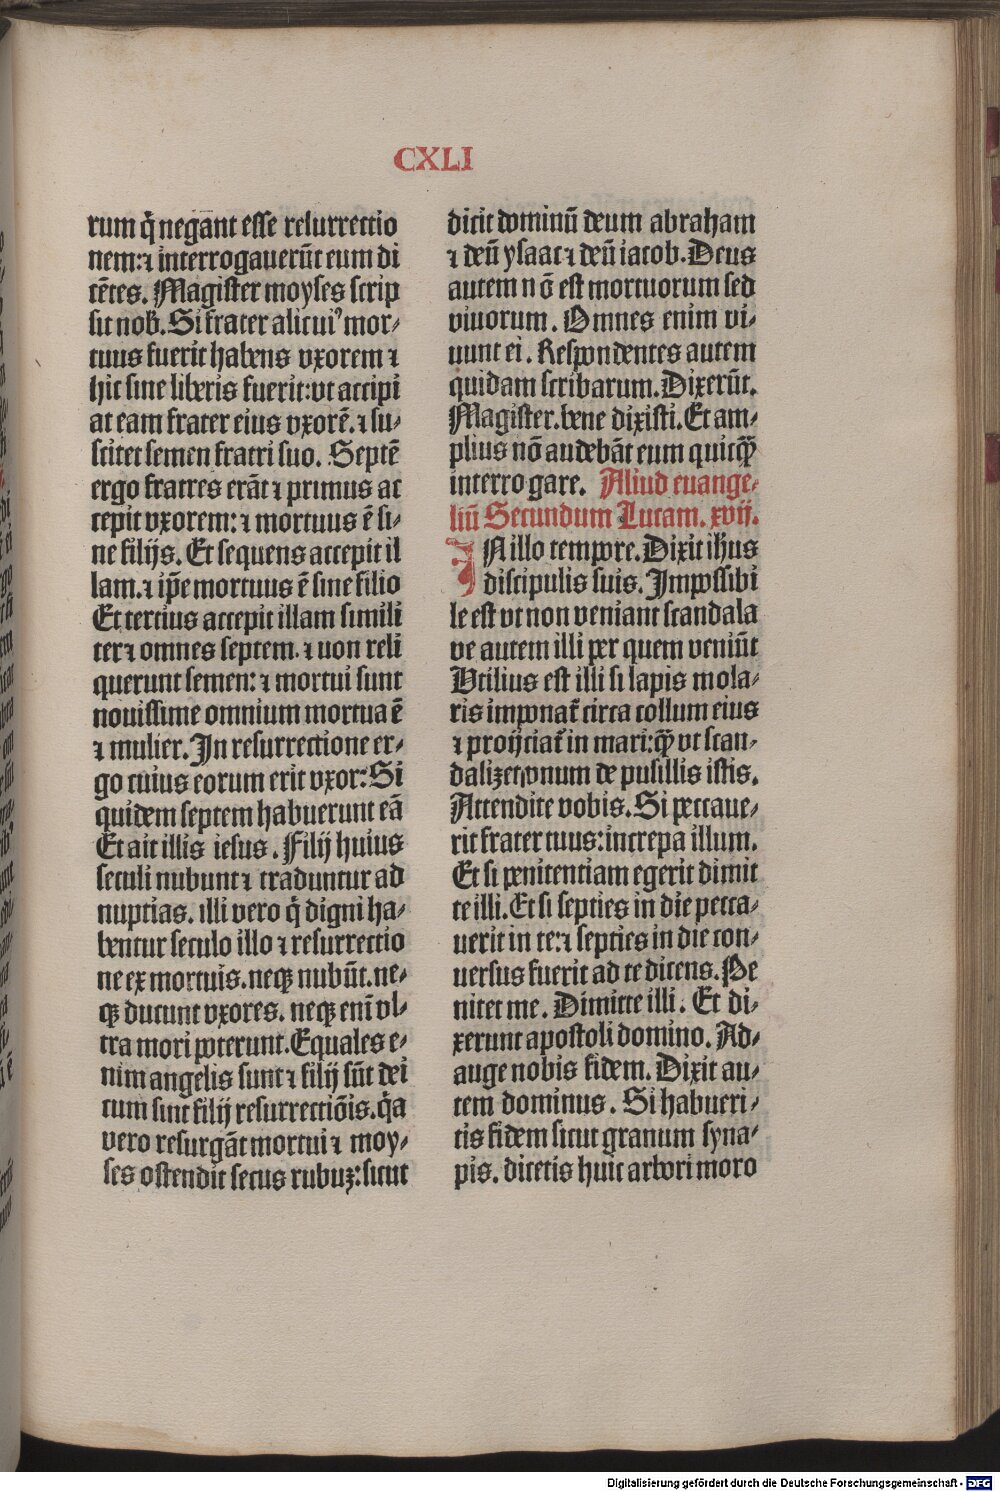 CXLI
rum q̄ negant esse relurrectio
nem: ⁊ interrogauerūt eum di
cētes. Magister moyses scrip
sit nob̄. Si frater alicuiꝰ mor⸗
tuus fuerit habens vxorem ⁊
hic sine liberis fuerit: vt accipi
at eam frater eius vxorē. ⁊ su⸗
scitet semen fratri suo. Septē
ergo fratres erāt ⁊ primus ac
cepit vxorem: ⁊ mortuus ē si⸗
ne filijs. Et sequens accepit il
lam. ⁊ ip̄e mortuus ē sine filio
Et tertius accepit illam simili
ter ⁊ omnes septem. ⁊ uon reli
querunt semen: ⁊ mortui sunt
nouissime omnium mortua ē
⁊ mulier. In resurrectione er⸗
go cuius eorum erit vxor: Si
quidem septem habuerunt eā
Et ait illis iesus. Filij huius
seculi nubunt ⁊ traduntur ad
nuptias. illi vero q̄ digni ha⸗
bentur seculo illo ⁊ resurrectio
ne ex mortuis. neqꝫ nubūt. ne⸗
qꝫ ducunt vxores. neqꝫ eni̅ vl⸗
tra mori poterunt. Equales e⸗
nim angelis sunt ⁊ filij sūt dei
cum sint filij resurrectiōis. q̄a
vero resurgāt mortui ⁊ moy⸗
ses ostendit secus rubuꝫ: sicut
dicit dominū deum abraham
⁊ deū ysaac ⁊ deū iacob. Deus
autem nō est mortuorum sed
viuorum. Omnes enim vi⸗
uunt ei. Respondentes autem
quidam scribarum. Dixerūt.
Magister. bene dixisti. Et am⸗
plius nō audebāt eum quicqꝫ̄
interrogare. Aliud euange⸗
liū Secundum Lucam. xvij.
IN illo tempore. Dixit ihus
discipulis suis. Impossibi
le est vt non veniant scandala
ve autem illi per quem veniūt
Vtilius est illi si lapis mola⸗
ris imponat̄ circa collum eius
⁊ proijciat̄ in mari: qꝫ̄ vt scan⸗
dalizet vnum de pusillis istis.
Attendite vobis. Si peccaue⸗
rit frater tuus: increpa illum.
Et si penitentiam egerit dimit
te illi. Et si septies in die pecca⸗
uerit in te: ⁊ septies in die con⸗
uersus fuerit ad te dicens. Pe
nitet me. Dimitte illi. Et di⸗
xerunt apostoli domino. Ad⸗
auge nobis fidem. Dixit au⸗
tem dominus. Si habueri⸗
tis fidem sicut granum syna⸗
pis. dicetis huic arbori moro
Digitalisierung gefördert durch die Deutsche Forschungsgemeinschaft - DFG